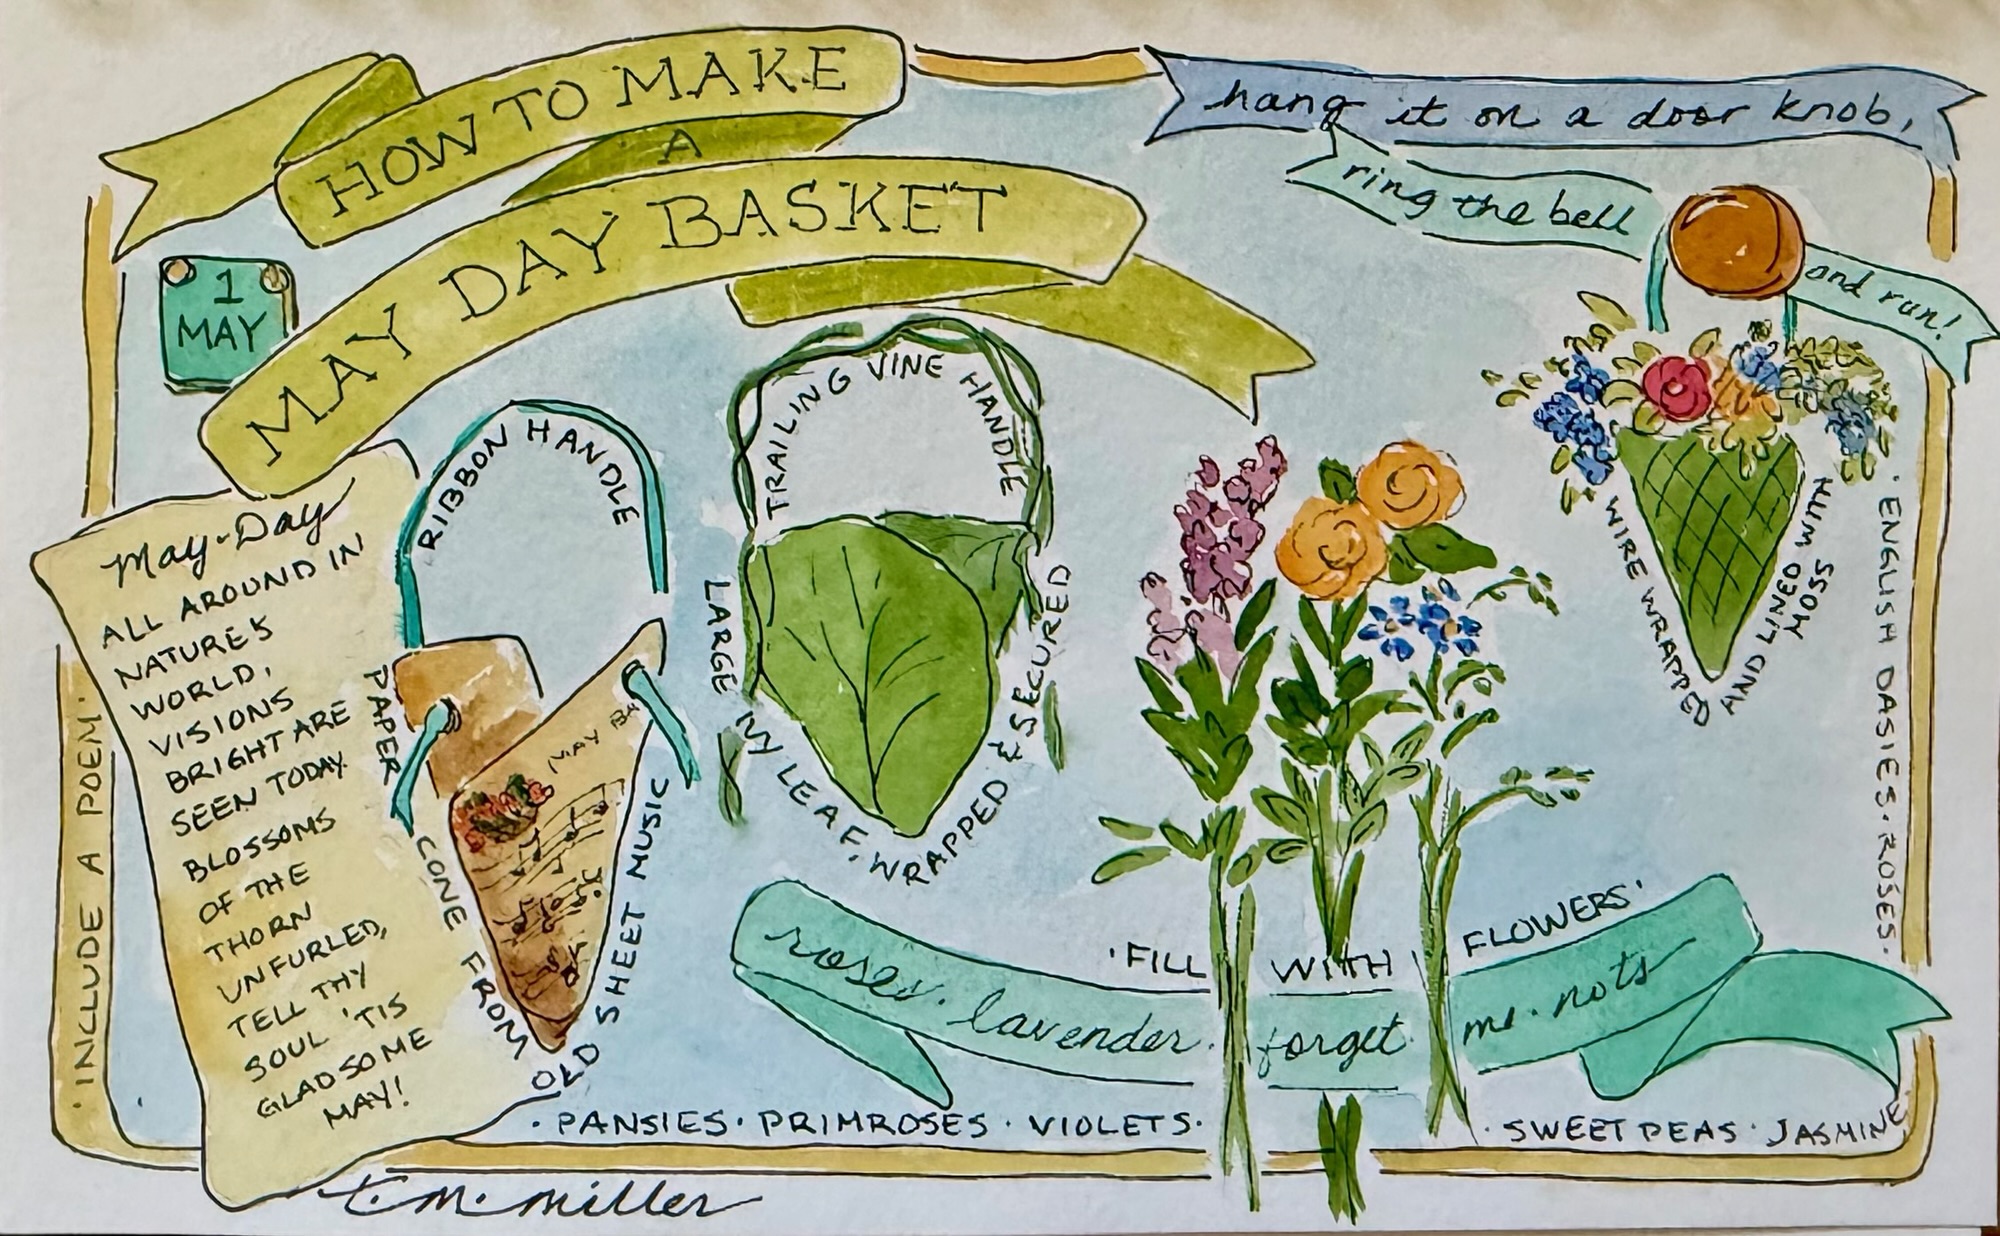 HOW TO MAKE
A
MAY DAY BASKET
1
MAY
hang it on a door knob,
ring the bell
and run!
May-Day
ALL AROUND IN
NATURE'S
WORLD,
VISIONS
BRIGHT ARE
SEEN TODAY.
BLOSSOMS
OF THE
THORN
UNFURLED,
TELL THY
SOUL 'TIS
GLADSOME
MAY!
·INCLUDE A POEM·
RIBBON HANDLE
PAPER CONE FROM OLD SHEET MUSIC
MAY BA
TRAILING VINE HANDLE
LARGE IVY LEAF, WRAPPED & SECURED
WIRE WRAPPED AND LINED WITH
MOSS
·FILL WITH FLOWERS·
roses. lavender. forget me. nots
·PANSIES·PRIMROSES·VIOLETS·
·SWEET PEAS·JASMINE
·ENGLISH DASIES·ROSES·
t.m.miller